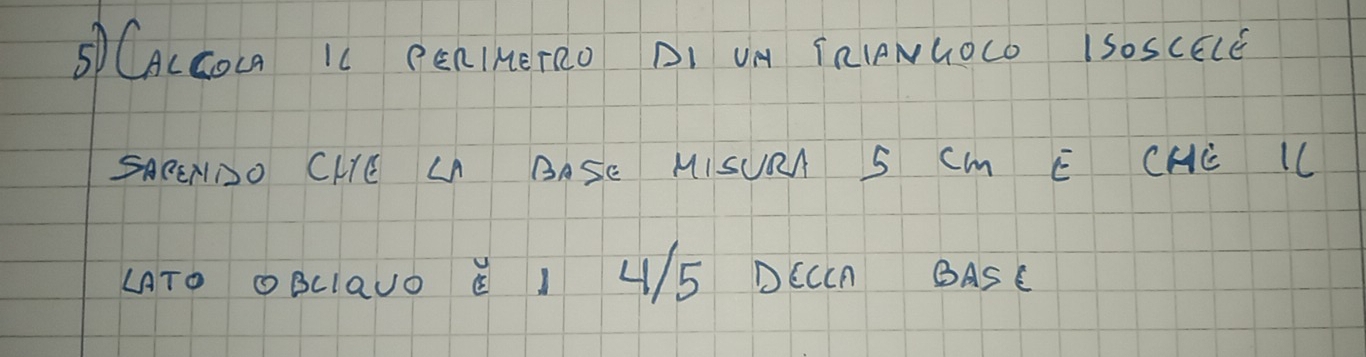 5) CALCOLA IL PERIMETRO DI UN TRIANGOLO ISOSCELE
SAPENDO CHE LA BASE MISURA 5 cm E CHE IL
LATO OBLIQUO È I 4/5 DELLA BASE